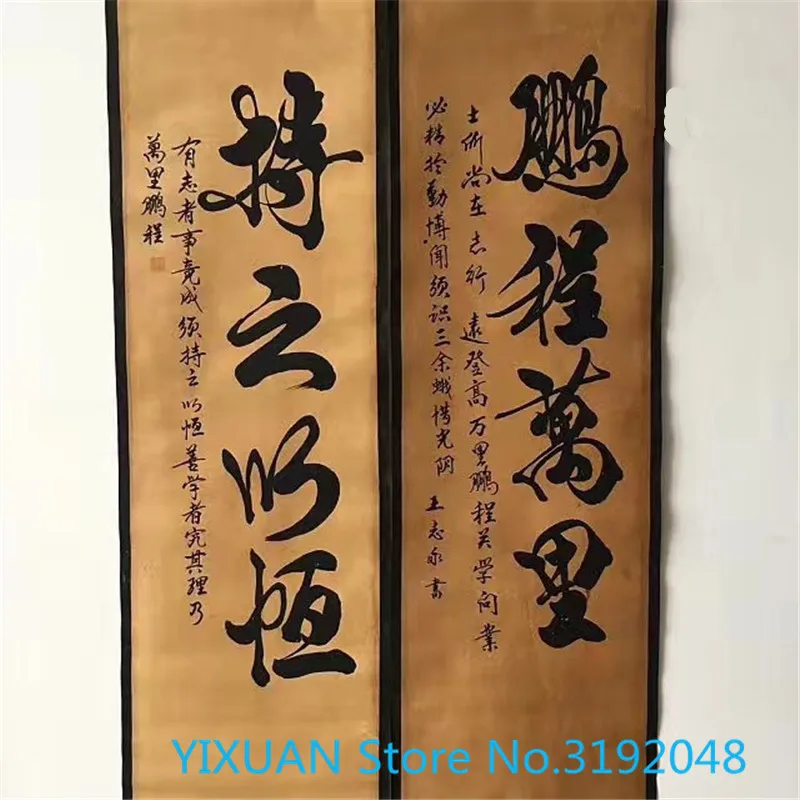 鹏程萬里
士所尚在志行遠登高万里鹏程关学问業
必精於勤博闻须识三余蛾惜光阴 王志永書
持之以恒
有志者事竟成须持之以恒善学者究其理乃
萬里鹏程
YIXUAN Store No.3192048